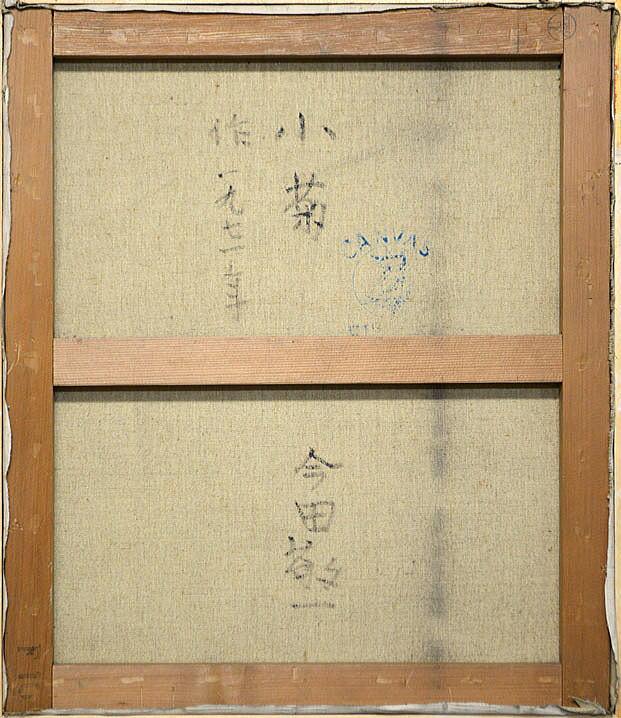 小菊
一九七一年
作
CANVAS
今田敬一